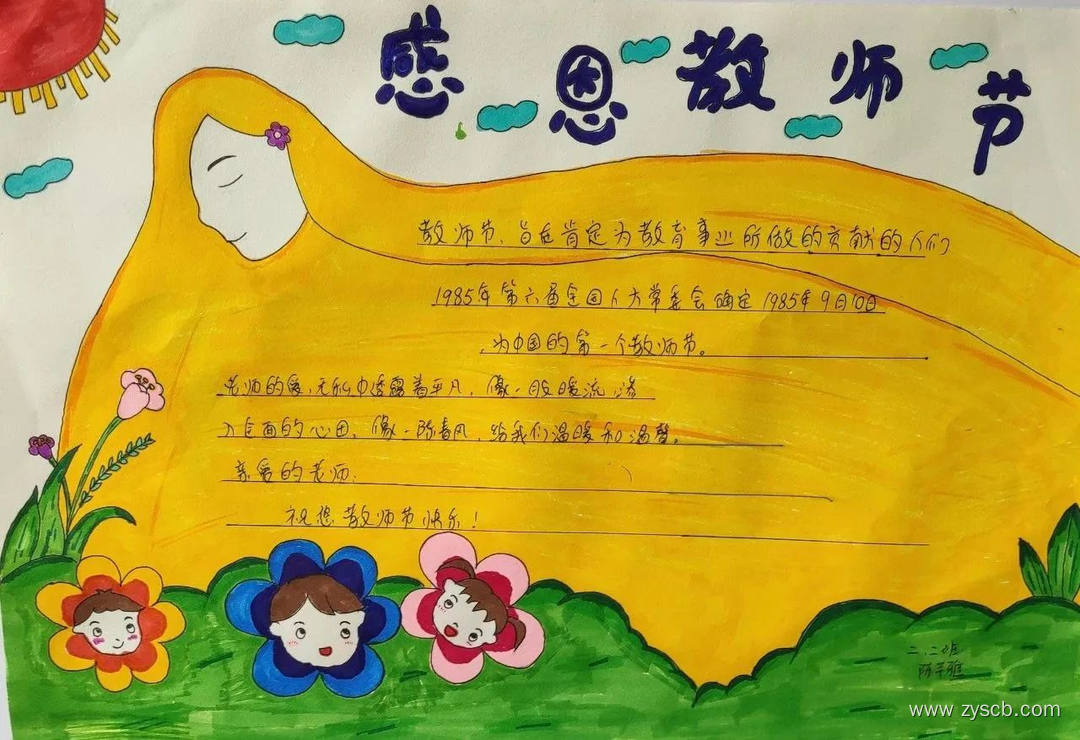 感恩教师节
教师节,旨在肯定为教育事业所做的贡献的人们
1985年第六届全国人大常委会确定1985年9月10日
为中国的第一个教师节。
老师的爱,无私中透露着平凡,像一股暖流,渗
入全面的心田,像一阵春风,给我们温暖和温馨。
亲爱的老师:
祝您教师节快乐!
二.二班
www.zyscb.com